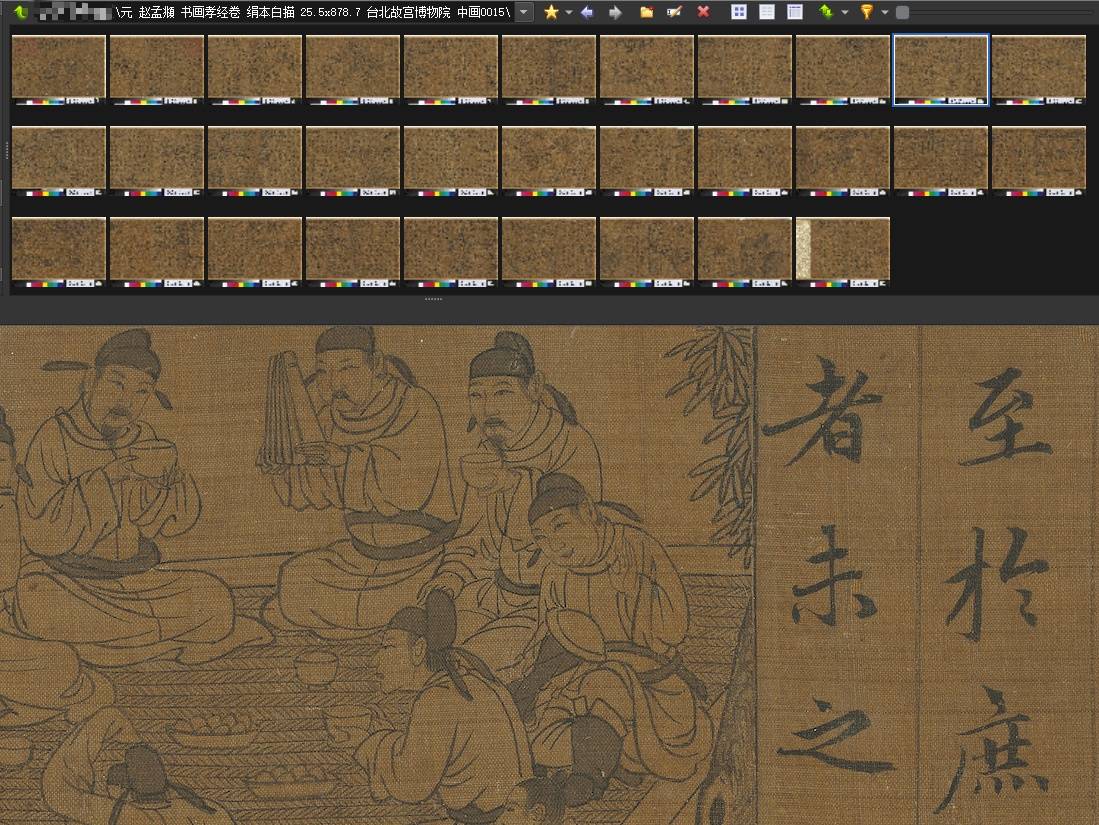 \元 赵孟頫 书画孝经卷 绢本白描 25.5x878.7 台北故宫博物院 中画0015\
至於庶
者未之